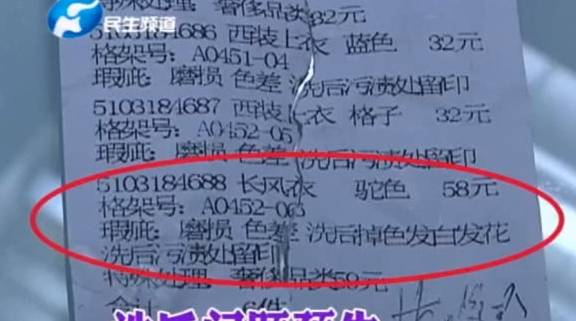 民生频道
特殊处理 奢侈品类32元
5103184686 西装上衣 蓝色 32元
格架号: A0451-04
瑕疵: 磨损 色差 洗后污渍处留印
5103184687 西装上衣 格子 32元
格架号: A0452-05
瑕疵: 磨损 色差 洗后污渍处留印
5103184688 长风衣 驼色 58元
格架号: A0452-06
瑕疵: 磨损 色差 洗后掉色发白发花
洗后污渍处留印
特殊处理 奢侈品类59元
合计 6件